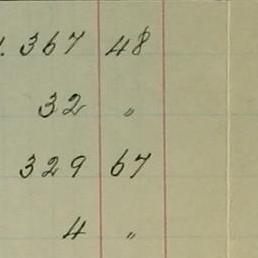 . 367 48
32 "
329 67
4 "